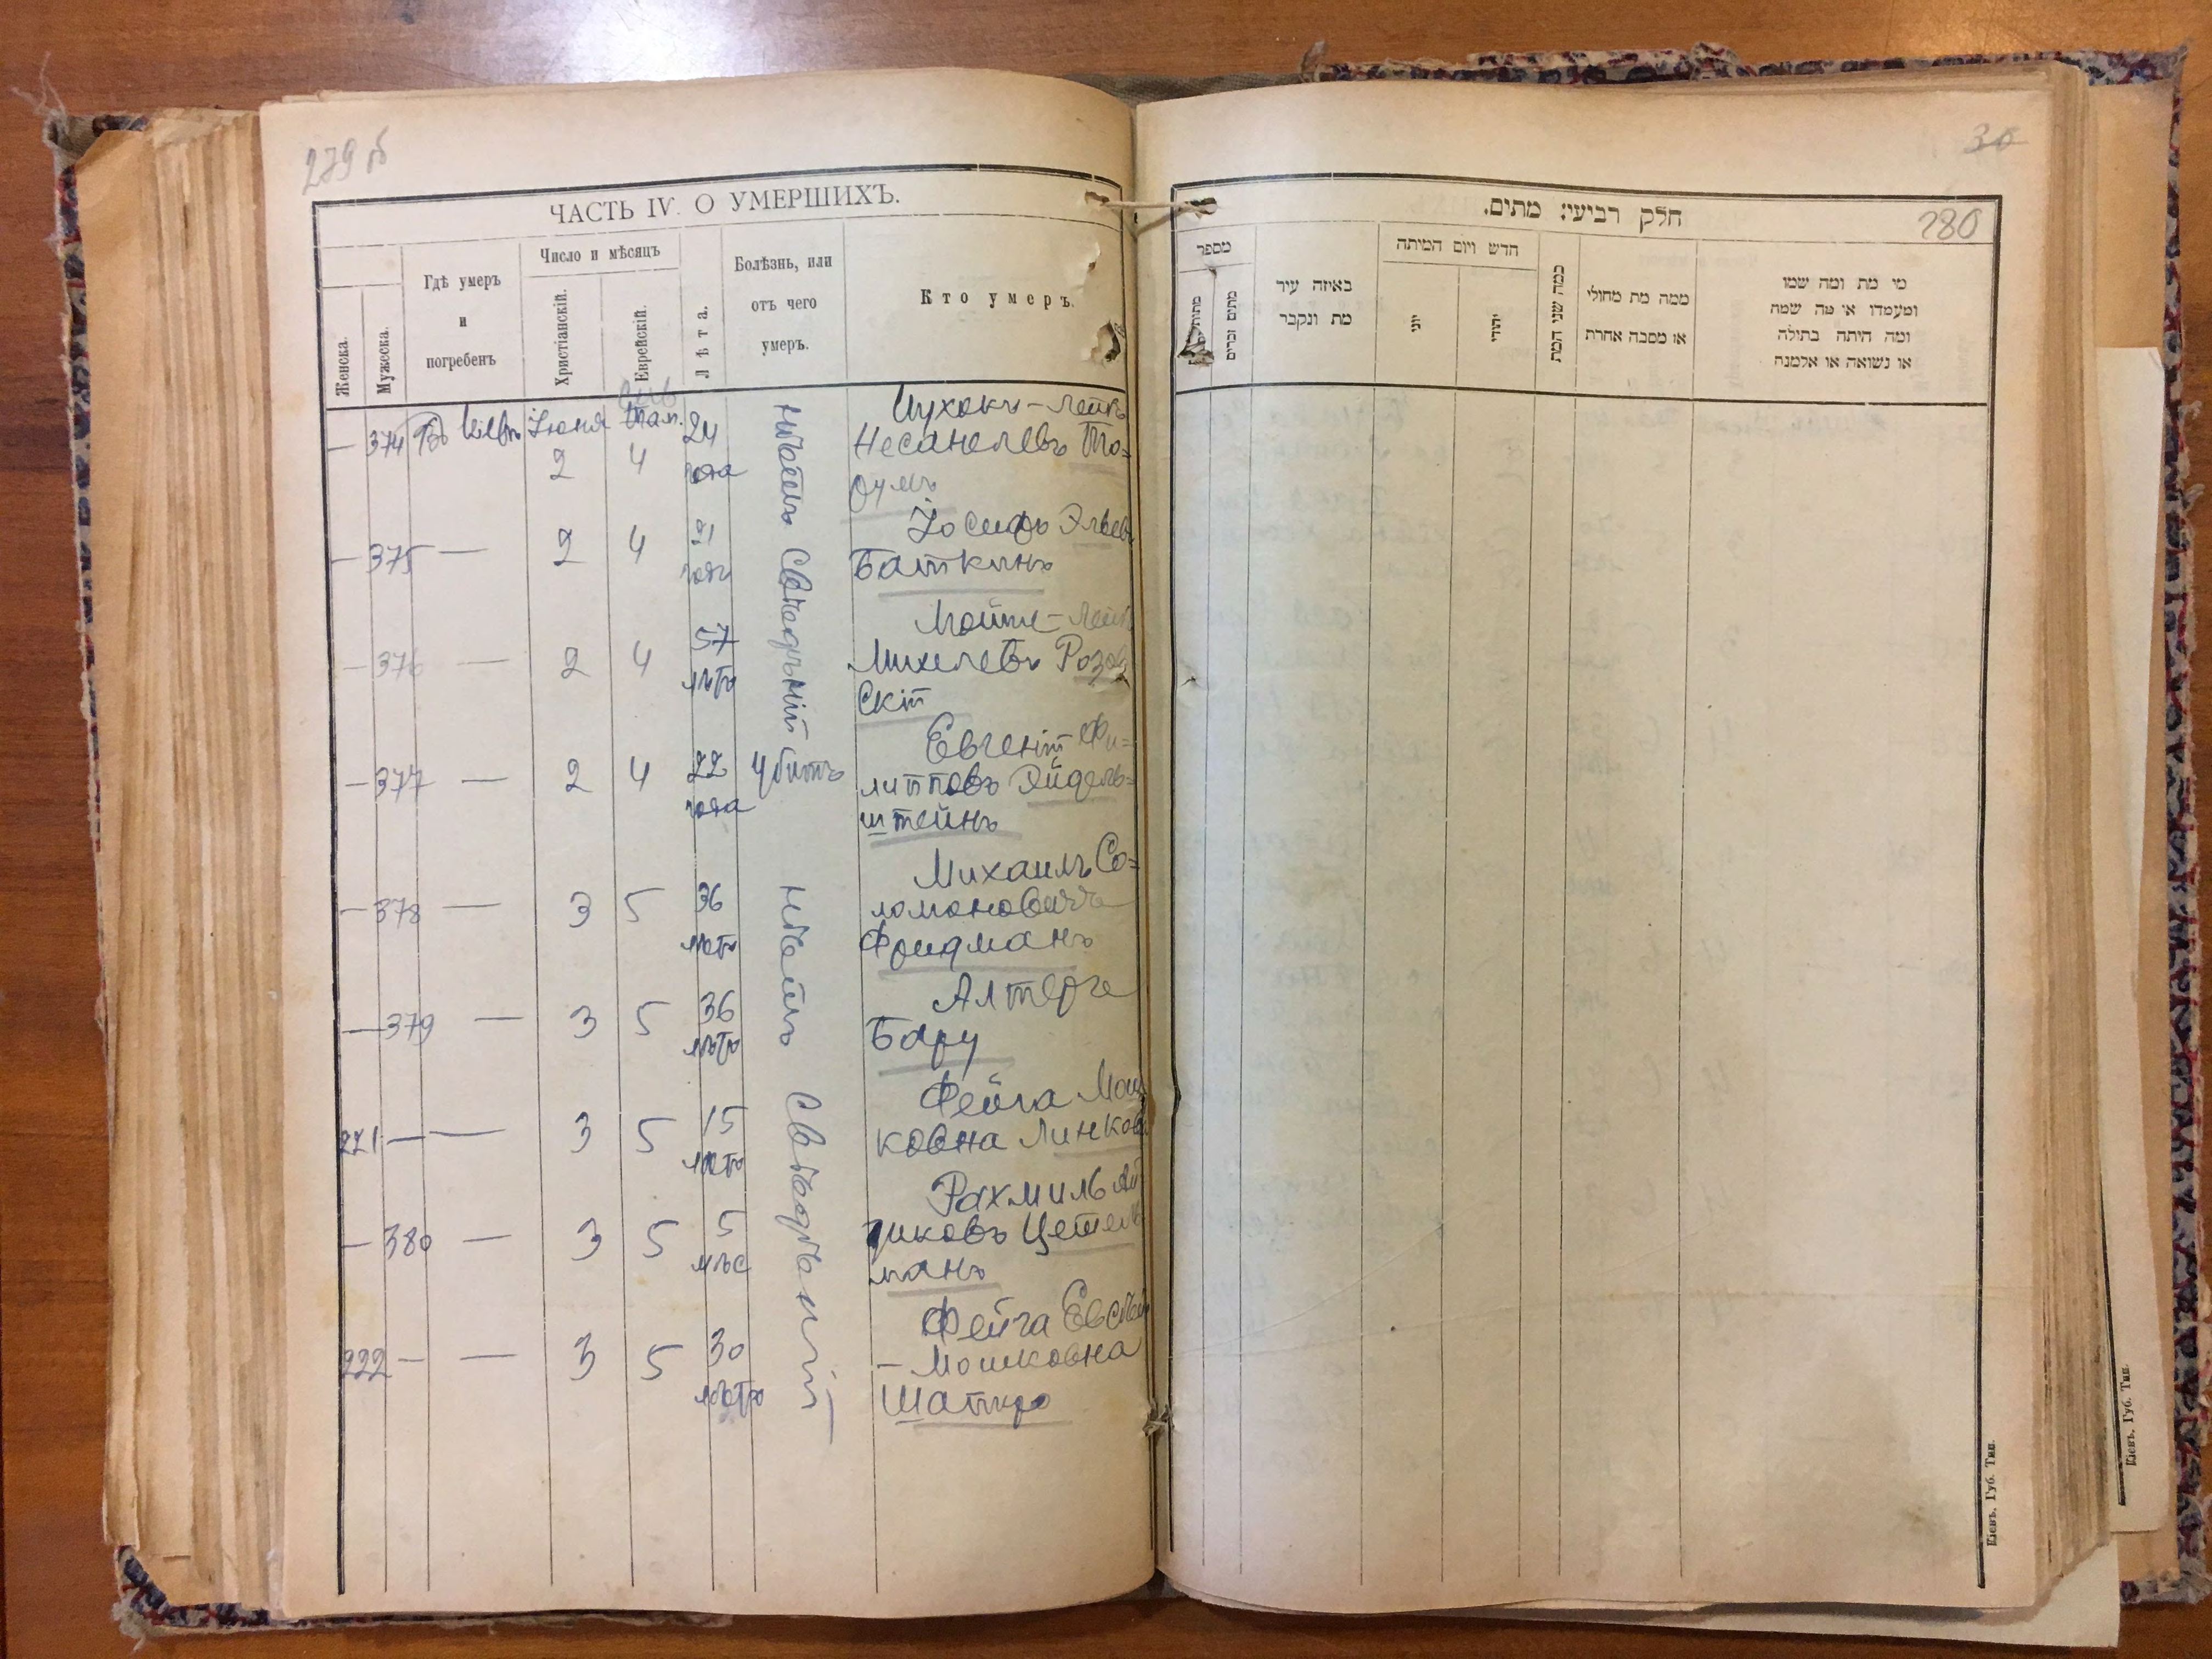 279 об
ЧАСТЬ IV. О УМЕРШИХЪ.
Женска.
Мужеска.
Гдѣ умеръ
и
погребенъ
Число и мѣсяцъ
Христіанскій.
Еврейскій.
Лѣта.
Болѣзнь, или
отъ чего
умеръ.
Кто умеръ.
— 374 Въ Кіевѣ Іюня Там. 24
2 4 года
Несанелевъ
— 375 — 2 4 21
года
Іосифъ Эльев
Баткинъ
— 376 — 2 4 57
лѣтъ
Мойше-Лейб
Михелевъ Розов
скій
Нѣтъ свѣдѣній
— 377 — 2 4 22
года
Убитъ
Евгеній Фи=
липповъ Эйдель=
штейнъ
— 378 — 3 5 36
лѣтъ
Михаилъ Со=
ломоновичъ
Фридманъ
— 379 — 3 5 36
лѣтъ
Алтеръ
Бару
— — 3 5 15
лѣтъ
Фейга Мош
ковна Линков
— 380 — 3 5 5
мѣс
Рахмиль Ай
зиковъ Цетель
манъ
222 — — 3 5 30
лѣтъ
Фейга
— Мошковна
Шапиро
свѣдѣній
30
280
חלק רביעי: מתים.
מספר
מתים זכרים
באיזה עיר
מת ונקבר
חדש ויום המיתה
יוני
יהודי
כמה שני המת
ממה מת מחולי
או מסבה אחרת
מי מת ומה שמו
ומעמדו או מה שמה
ומה היתה בתולה
או נשואה או אלמנה
Кіевъ. Губ. Тип.
Кіевъ. Губ. Тип.